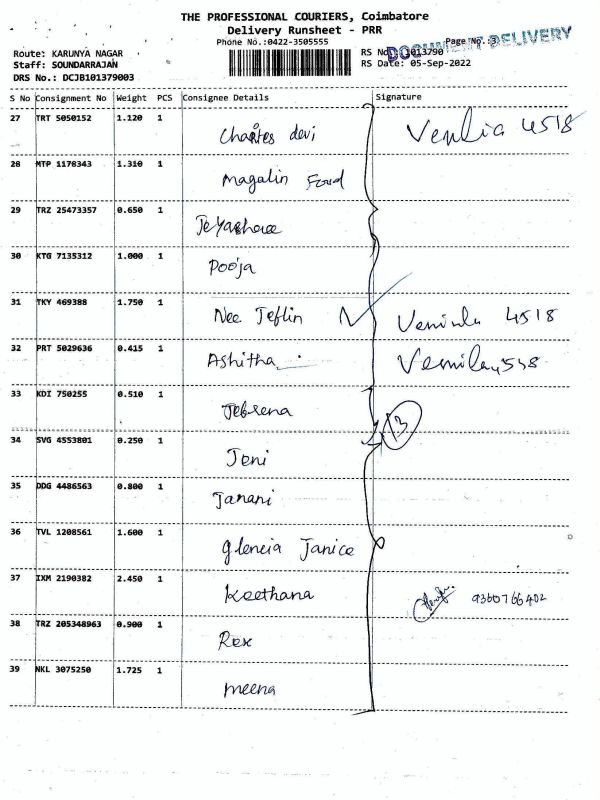 THE PROFESSIONAL COURIERS, Coimbatore
Delivery Runsheet - PRR
Phone No.:0422-3505555
Page No.:3
DOCUMENT DELIVERY
Route: KARUNYA NAGAR
RS No. 1013790
Staff: SOUNDARRAJAN
RS Date: 05-Sep-2022
DRS No.: DCJB101379003
S No Consignment No Weight PCS Consignee Details Signature
27 TRT 5050152 1.120 1 devi 4518
28 MTP 1178343 1.310 1 Magalin
29 TRZ 25473357 0.650 1
30 KTG 7135312 1.000 1 Pooja
31 TKY 469388 1.750 1 Nee Jeflin 4518
32 PRT 5029636 0.415 1 Ashitha
33 KDI 750255 0.510 1 Jebsena
13
34 SVG 4553801 0.250 1 Joni
35 DDG 4486563 0.800 1 Janani
36 TVL 1208561 1.600 1 Glencia Janice
37 IXM 2190382 2.450 1 Keethana 9360766402
38 TRZ 205348963 0.900 1 Rex
39 NKL 3075250 1.725 1 meena